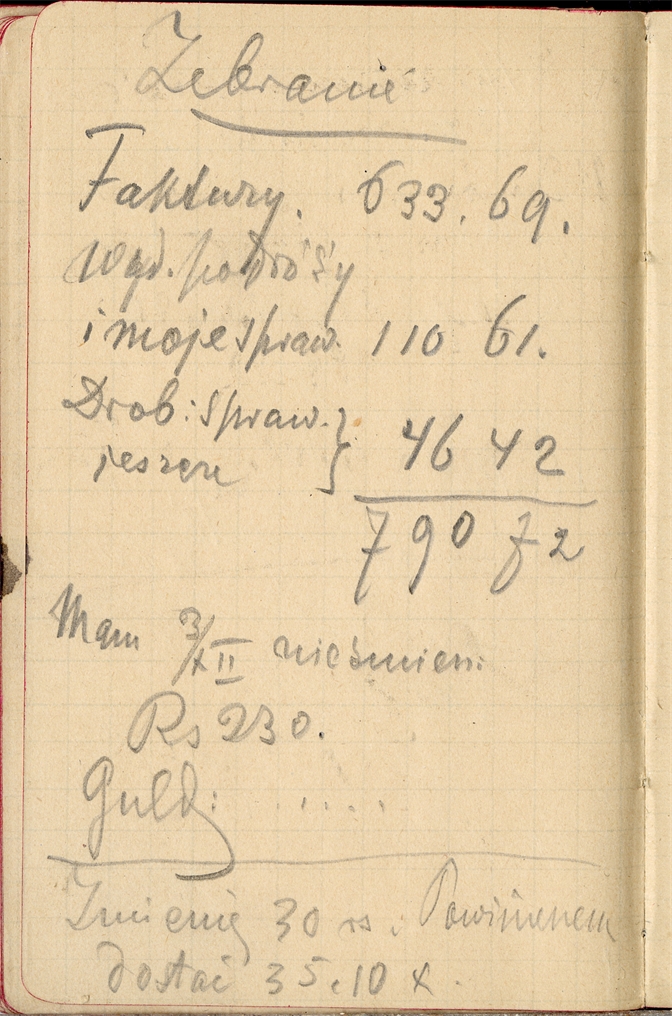 Zebranie
Faktury. 633.69.
Wyd. podróży
i moje spraw. 110 61.
Drob: spraw.
jeszcze } 46 42
790 72
Mam 3/XII niezmien:
Rs 230.
Guld: ....
Zmienię 30 rs. Powinienem
dostać 35.10 x.